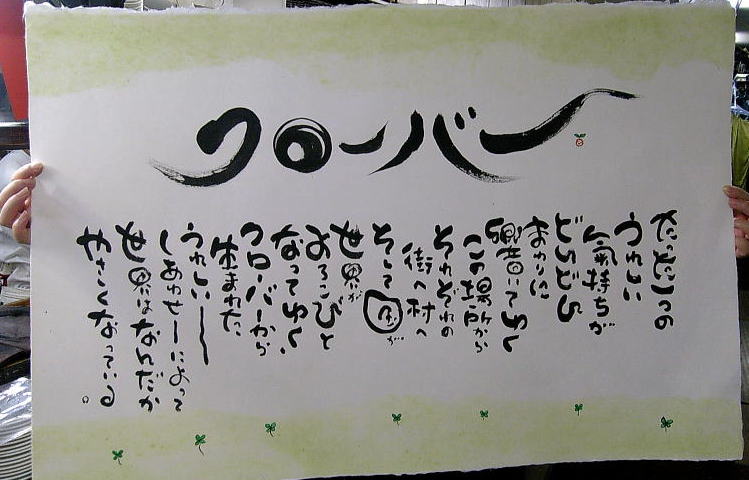 クローバー
たったこつの
うれしい
気持ちが
どんどん
まわりに
響いてゆく
この場所から
それぞれの
街へ村へ
そして国が
世界が
よろこびと
なってゆく
クローバーから
生まれた
うれしいーーー
しあわせーによって
世界はなんだか
やさしくなっている。